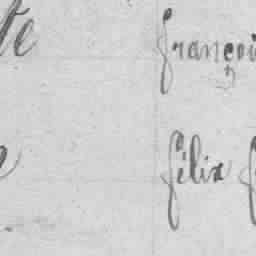 te françoi
félix f